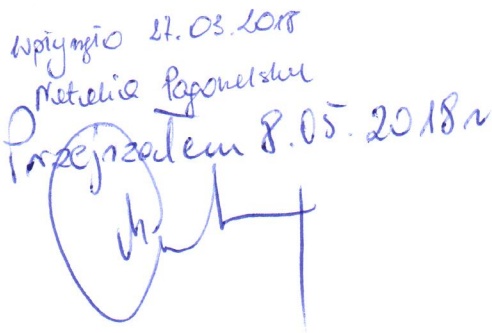 Wpłynęło 27.03.2018
Natalia
Przejrzałem 8.05.2018r